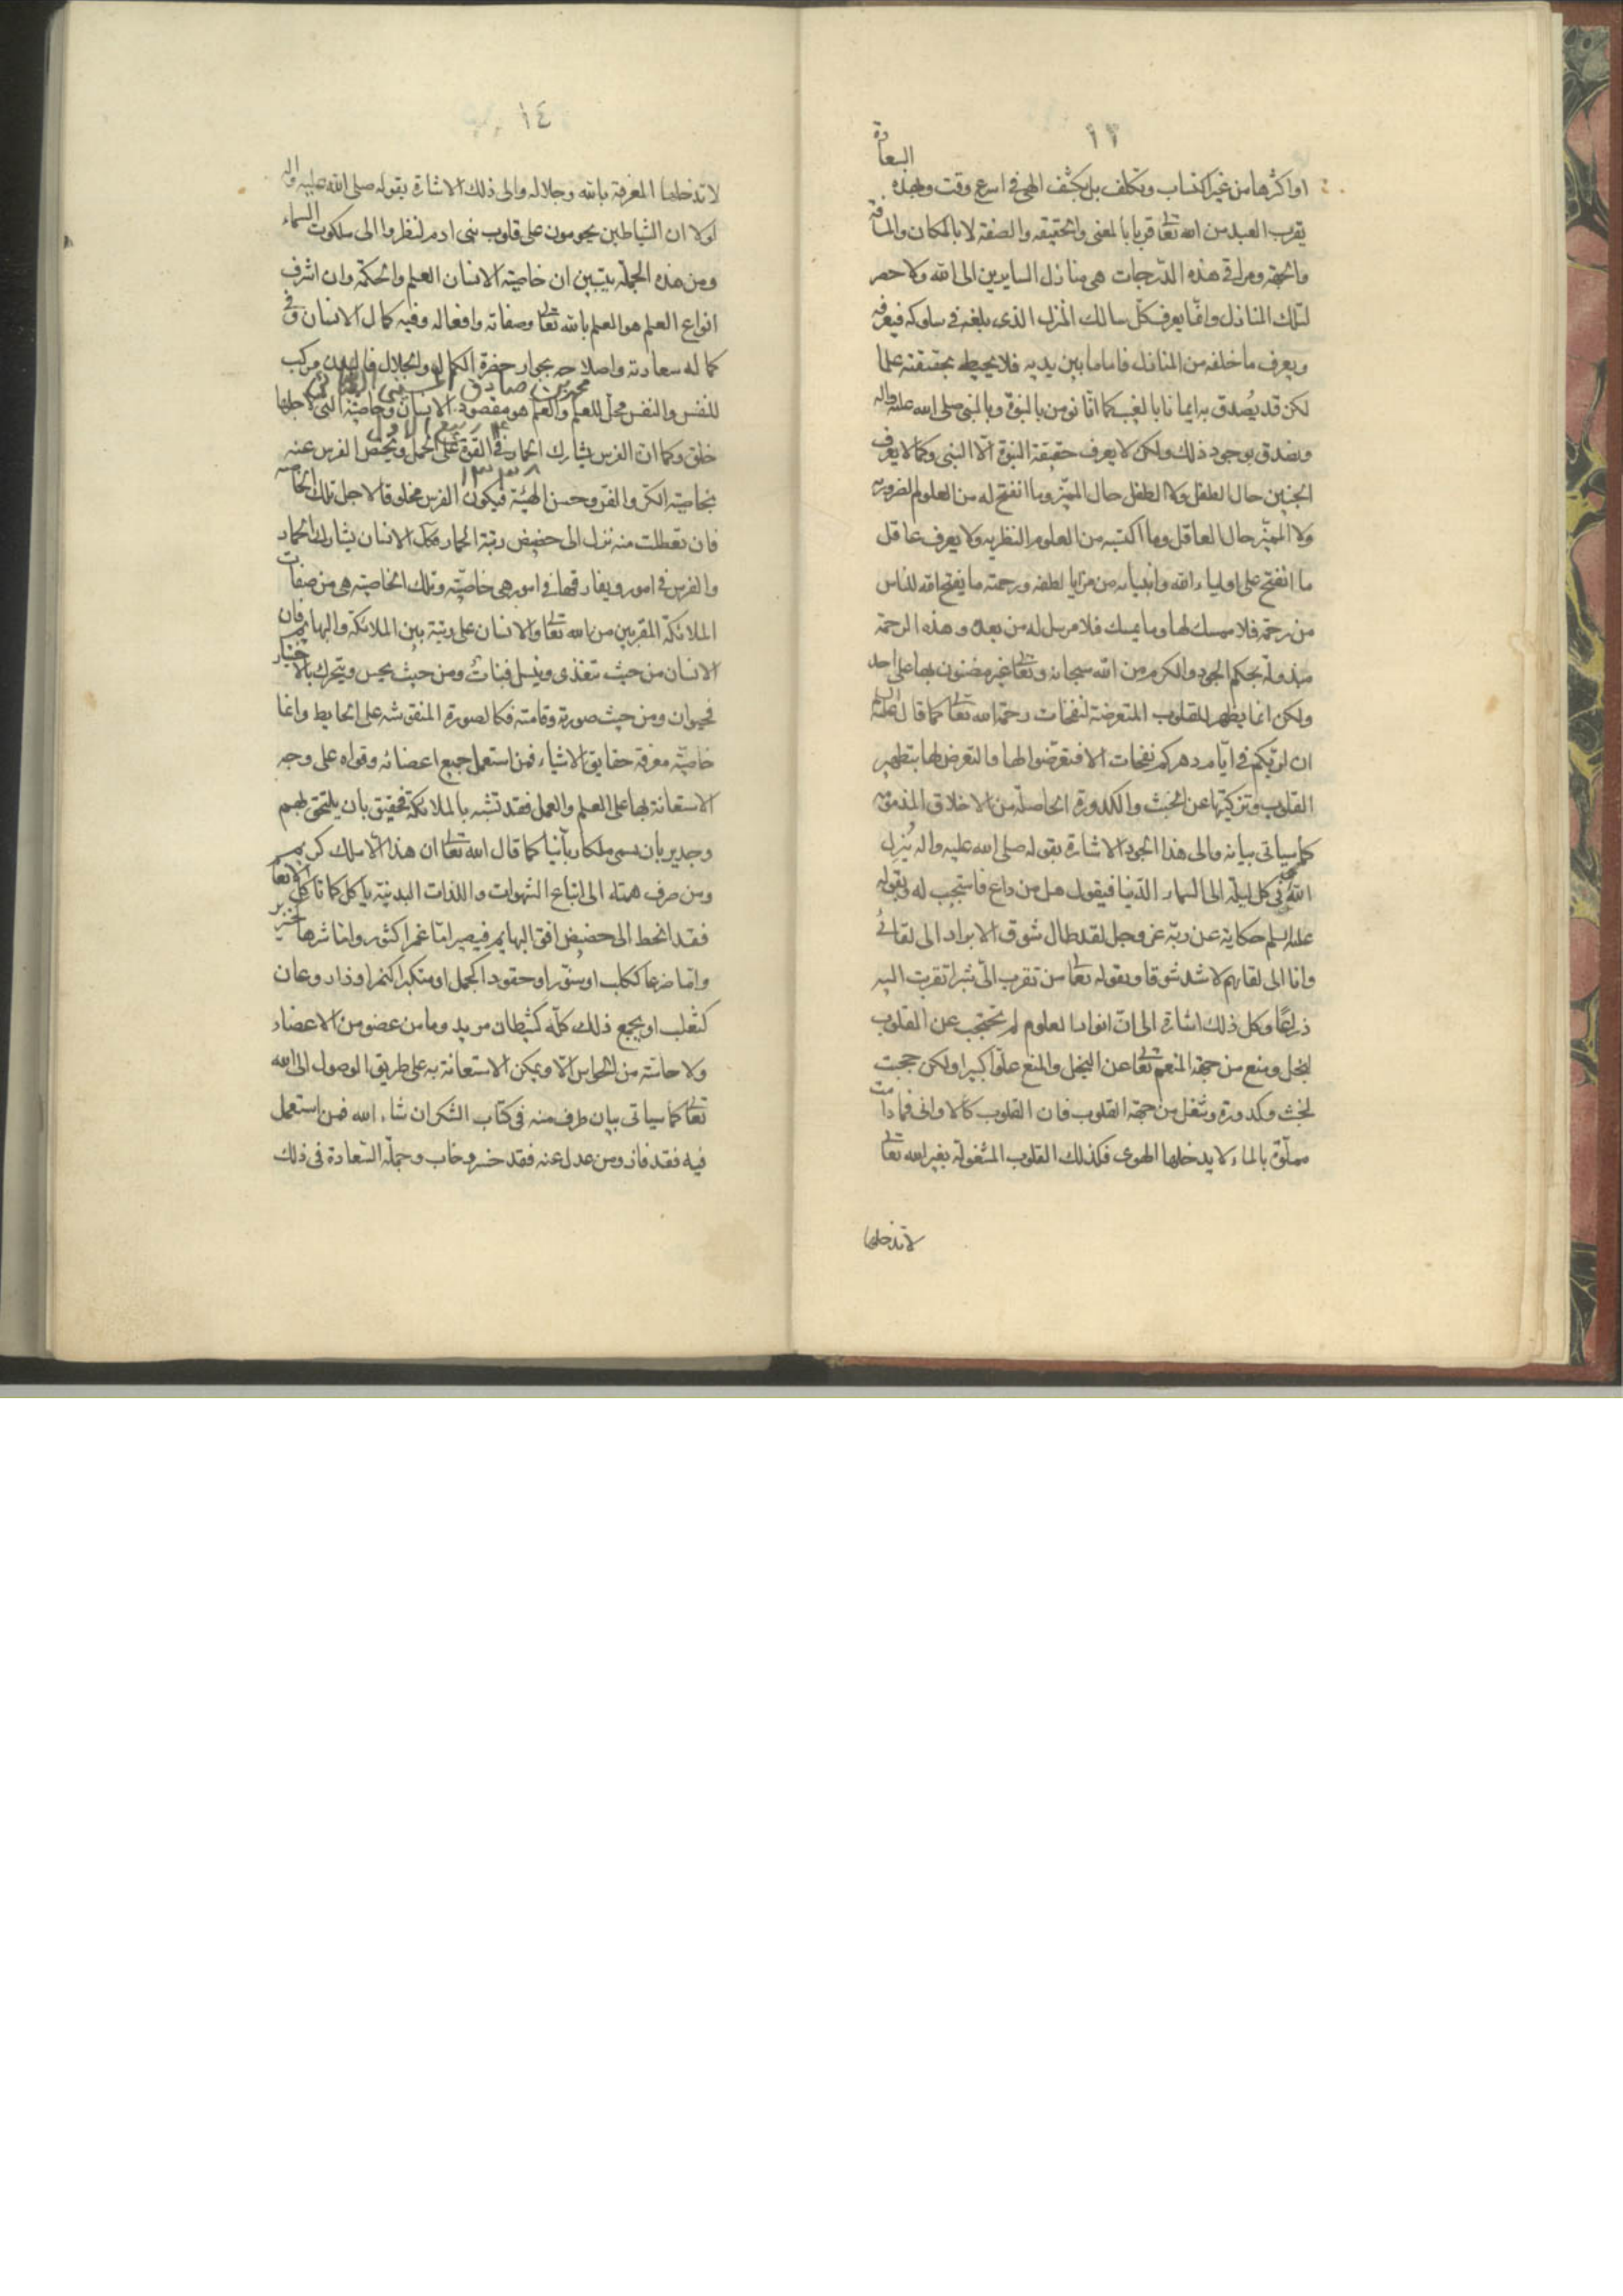 ١٣
او اكثرها من غير اكتساب وتكلف بل بكشف الهى فى اسرع وقت وبهذه السعادة
يقرب العبد من الله تعالى قربا بالمعنى والحقيقه والصفه لا بالمكان والمسافة
والجهة ومراقى هذه الدرجات هى منازل السايرين الى الله ولا حصر
لتلك المنازل وانما يعرف كل سالك المنزل الذى بلغه فى سلوكه فيعرفه
ويعرف ما خلفه من المنازل فاما ما بين يديه فلا يحيط بحقيقته علما
لكن قد يصدق به ايمانا بالغيب كما انا نومن بالنبوة وبالنبى صلى الله عليه واله
ونصدق بوجود ذلك ولكن لا يعرف حقيقة النبوة الا النبى وكما لا يعرف
الجنين حال الطفل ولا الطفل حال المميز وما انفتح له من العلوم الضروريه
ولا المميز حال العاقل وما اكتسبه من العلوم النظريه ولا يعرف عاقل
ما انفتح على اولياء الله وانبيائه من مزايا لطفه ورحمته ما يفتح الله للناس
من رحمة فلا ممسك لها وما يمسك فلا مرسل له من بعده وهذه الرحمة
مبذولة بحكم الجود والكرم من الله سبحانه وتعالى غير مضنون بها على احد
ولكن انما يظهر للقلوب المتعرضة لنفحات رحمة الله تعالى كما قال عليه السلام
ان لربكم فى ايام دهركم نفحات الا فتعرضوا لها والتعرض لها بتطهير
القلوب وتزكيتها عن الخبث والكدورة الحاصلة من الاخلاق المذمومة
كما سياتى بيانه والى هذا الجود الاشارة بقوله صلى الله عليه واله يُنزل
الله فى كل ليلة الى السماء الدنيا فيقول هل من داع فاستجيب له وبقوله
عليه السلم حكاية عن ربه عز وجل لقد طال شوق الابرار الى لقائى
وانا الى لقائهم لاشد شوقا وبقوله تعالى من تقرب الى شبرا تقربت اليه
ذراعًا وكل ذلك اشارة الى ان انوار العلوم لم تحتجب عن القلوب
لبخل ومنع من جهة المنعم تعالى عن البخل والمنع علوا كبيرا ولكن حجبت
لخبث وكدورة وشغل من جهة القلوب فان القلوب كالاوانى فما دامت
مملوة بالماء لا يدخلها الهوى فكذلك القلوب المشغولة بغير الله تعالى
لا تدخلها
١٤
لا تدخلها المعرفة بالله وجلاله والى ذلك الاشارة بقوله صلى الله عليه واله
لولا ان الشياطين يحومون على قلوب بنى ادم لنظروا الى ملكوت السماء
ومن هذه الجملة يتبين ان خاصية الانسان العلم والحكمة وان اشرف
انواع العلم هو العلم بالله تعالى وصفاته وافعاله وفيه كمال الانسان وفى
كماله سعادته واصلاحه بجوار حضرة الكمال والجلال فالبدن مركب
محمد بن صادق الحسينى
للنفس والنفس محل للعلم والعلم هو مقصود الانسان وخاصيته التى لاجلها
ربيع الاول
خلق وكما ان الفرس يشارك الحمار فى القوة على الحمل ويختص الفرس عنه
١٣٣٨
بخاصية الكر والفر وحسن الهيئة فيكون الفرس مخلوقا لاجل تلك الخاصية
فان تعطلت منه نزل الى حضيض رتبة الحمار فكك الانسان يشارك الحمار
والفرس فى امور ويفارقهما فى امور هى خاصيته وتلك الخاصية هى من صفات
الملائكة المقربين من الله تعالى والانسان على رتبة بين الملائكة والبهايم فان
الانسان من حيث يتغذى وينسل فنبات ومن حيث يحس ويتحرك بالاختيار
فحيوان ومن حيث صورته وقامته فكالصورة المنقوشه على الحايط وانما
خاصيته معرفة حقايق الاشياء فمن استعمل جميع اعضائه وقواه على وجه
الاستعانة بها على العلم والعمل فقد تشبه بالملائكة فحقيق بان يلتحق بهم
وجدير بان يسمى ملكا ربانيا كما قال الله تعالى ان هذا الا ملك كريم
ومن صرف همته الى اتباع الشهوات واللذات البدنية ياكل كما تاكل الانعام
فقد انحط الى حضيض افق البهايم فيصير اما غمرا كثور واما شرها كخنزير
واما ضرعا ككلب او سنور او حقودا كجمل او متكبرا كنمر او ذا روغان
كثعلب او يجمع ذلك كله كشيطان مريد وما من عضو من الاعضاء
ولا حاسة من الحواس الا ويمكن الاستعانة به على طريق الوصول الى الله
تعالى كما سياتى بيان طرف منه فى كتاب الشكر ان شاء الله فمن استعمل
فيه فقد فاز ومن عدل عنه فقد خسر وخاب وجملة السعادة فى ذلك